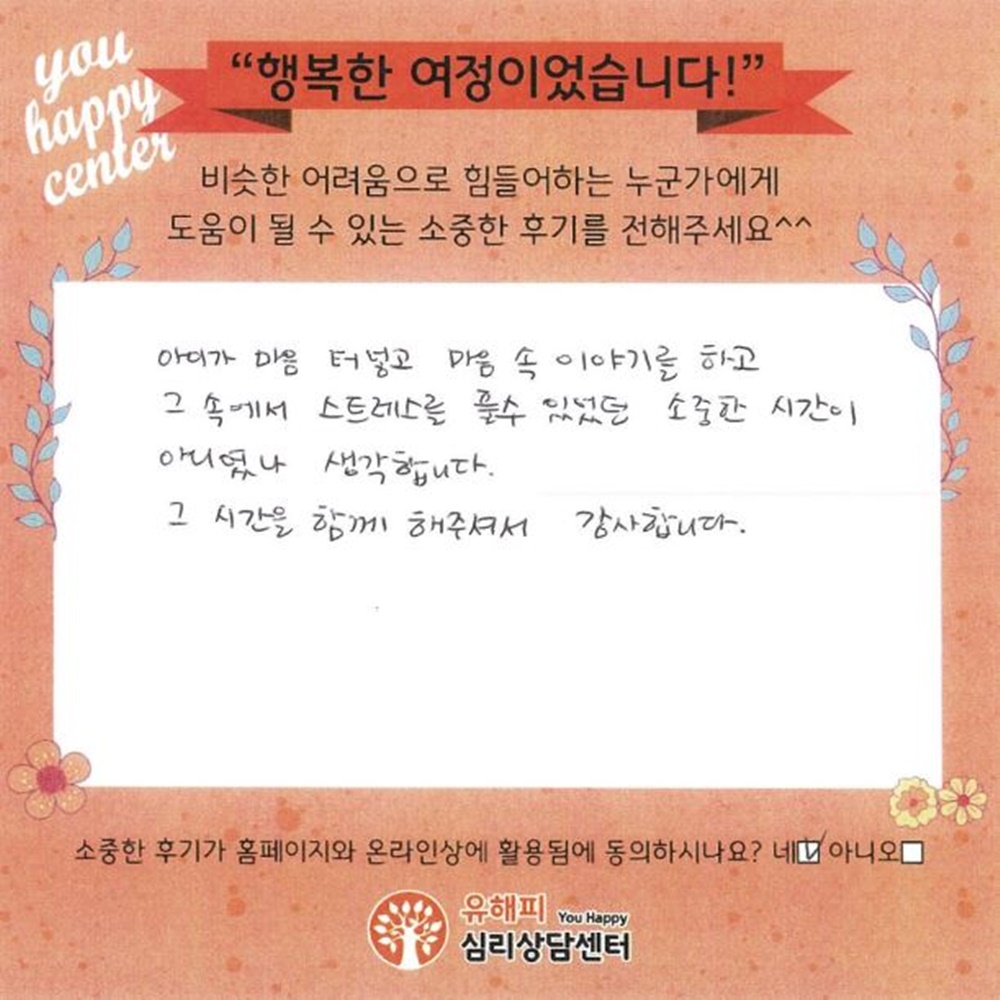 you
happy
center
“행복한 여정이었습니다!”
비슷한 어려움으로 힘들어하는 누군가에게
도움이 될 수 있는 소중한 후기를 전해주세요^^
아이가 마음 터넣고 마음 속 이야기를 하고
그 속에서 스트레스를 풀수 있었던 소중한 시간이
아니였나 생각합니다.
그 시간을 함께 해주셔서 감사합니다.
소중한 후기가 홈페이지와 온라인상에 활용됨에 동의하시나요? 네☑ 아니오☐
유해피 You Happy
심리상담센터